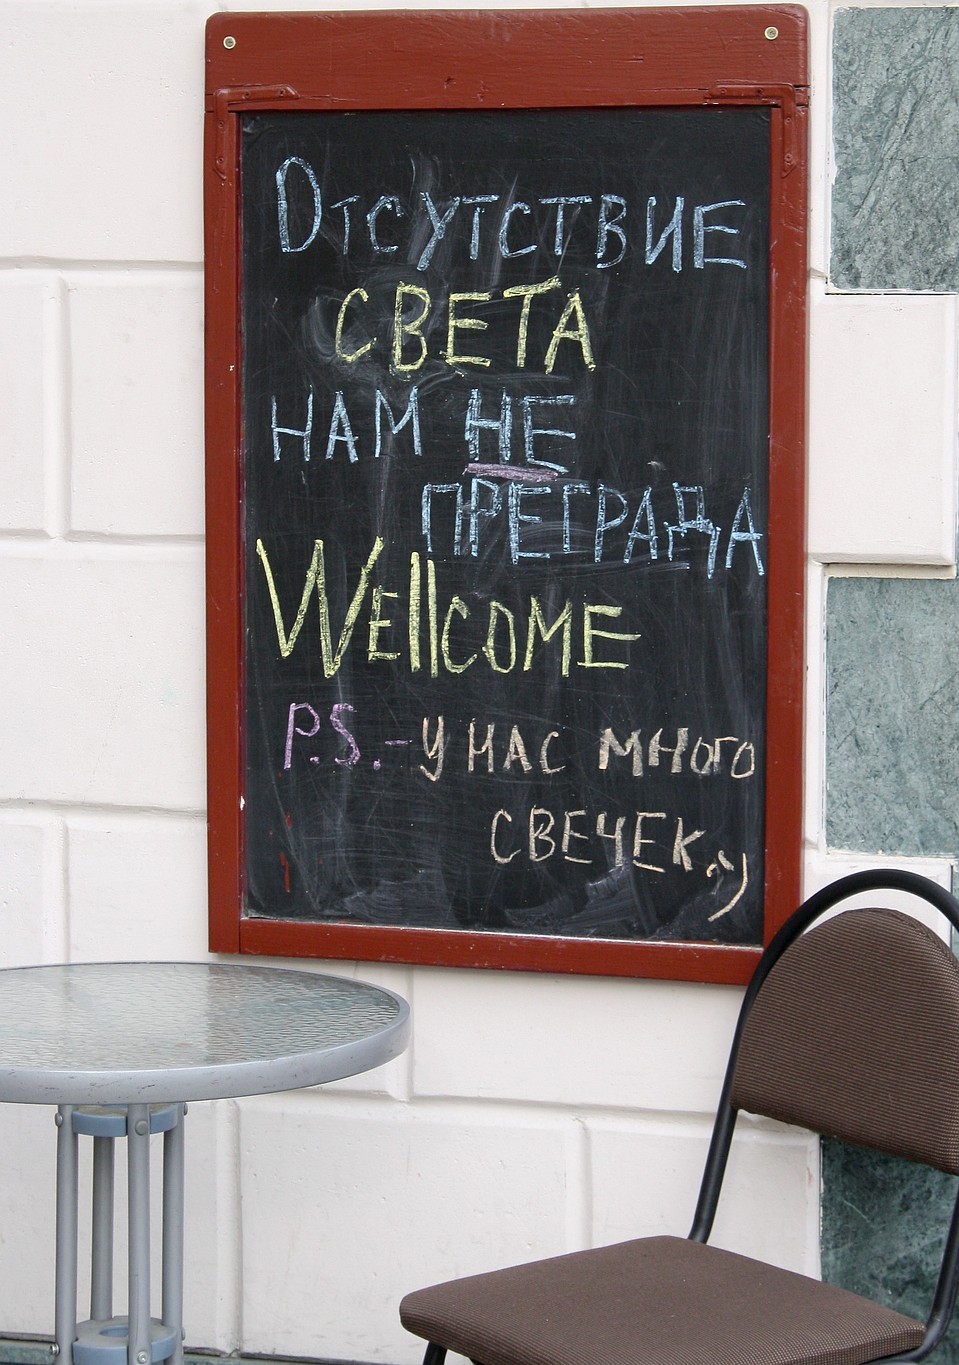 Отсутствие
света
нам не
преграда
Wellcome
P.S.-у нас много
свечек ;)